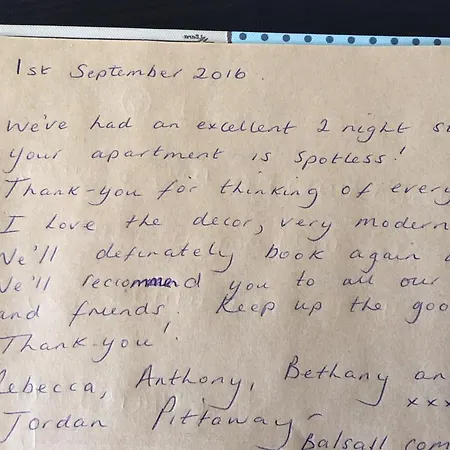 1st September 2016.
We've had an excellent 2 night
your apartment is spotless!
Thank-you for thinking of every
I love the decor, very modern
We'll definately book again
We'll reccommend you to all our
and friends. Keep up the goo
Thank-you!
Rebecca, Anthony, Bethany an
xxx
Jordan Pittaway-
Balsall com